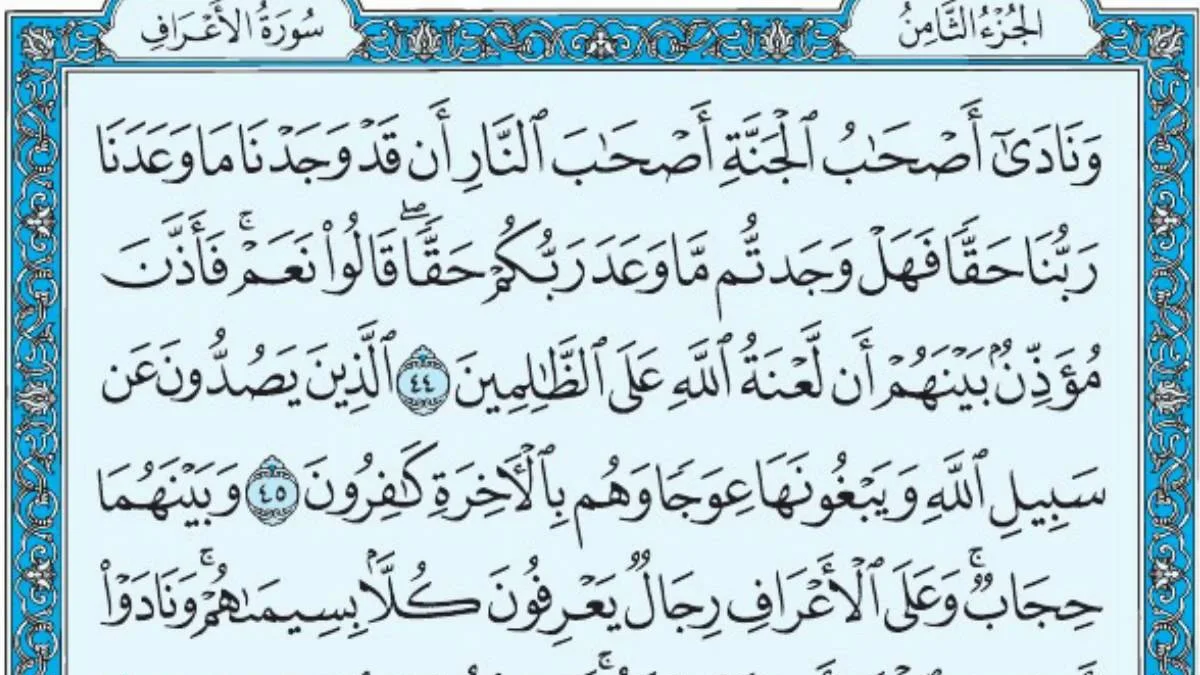 الجُزْءُ الثَّامِنُ
سُورَةُ الأَعْرَافِ
وَنَادَىٰٓ أَصْحَٰبُ ٱلْجَنَّةِ أَصْحَٰبَ ٱلنَّارِ أَن قَدْ وَجَدْنَا مَا وَعَدَنَا
رَبُّنَا حَقًّا فَهَلْ وَجَدتُّم مَّا وَعَدَ رَبُّكُمْ حَقًّاۖ قَالُوا۟ نَعَمْۚ فَأَذَّنَ
مُؤَذِّنٌۢ بَيْنَهُمْ أَن لَّعْنَةُ ٱللَّهِ عَلَى ٱلظَّٰلِمِينَ ٤٤ ٱلَّذِينَ يَصُدُّونَ عَن
سَبِيلِ ٱللَّهِ وَيَبْغُونَهَا عِوَجًا وَهُم بِٱلْأَخِرَةِ كَٰفِرُونَ ٤٥ وَبَيْنَهُمَا
حِجَابٌۚ وَعَلَى ٱلْأَعْرَافِ رِجَالٌ يَعْرِفُونَ كُلًّۢا بِسِيمَىٰهُمْۚ وَنَادَوْا۟